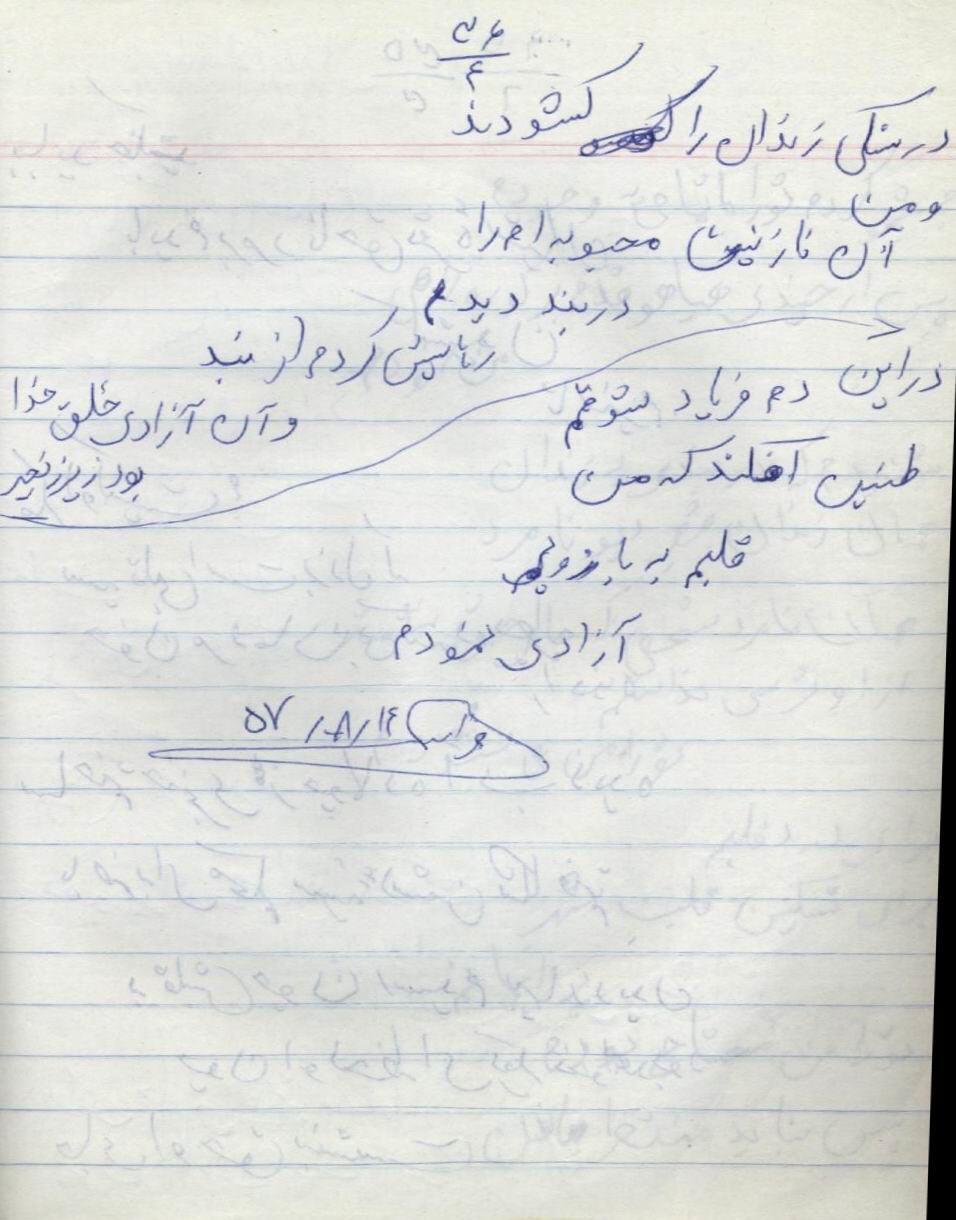 ۳۶
۴
در سنگی زندان را گشودند
و من
آن نازنین محبوبه ام را
در بند دیدم
رهایش کردم از بند
و آن آزادی خلق خدا
بود زیر زنجیر
در این دم فریاد شوقم
طنین افکند که من
قلبم به با
آزادی نمودم
۵۷/۸/۱۴